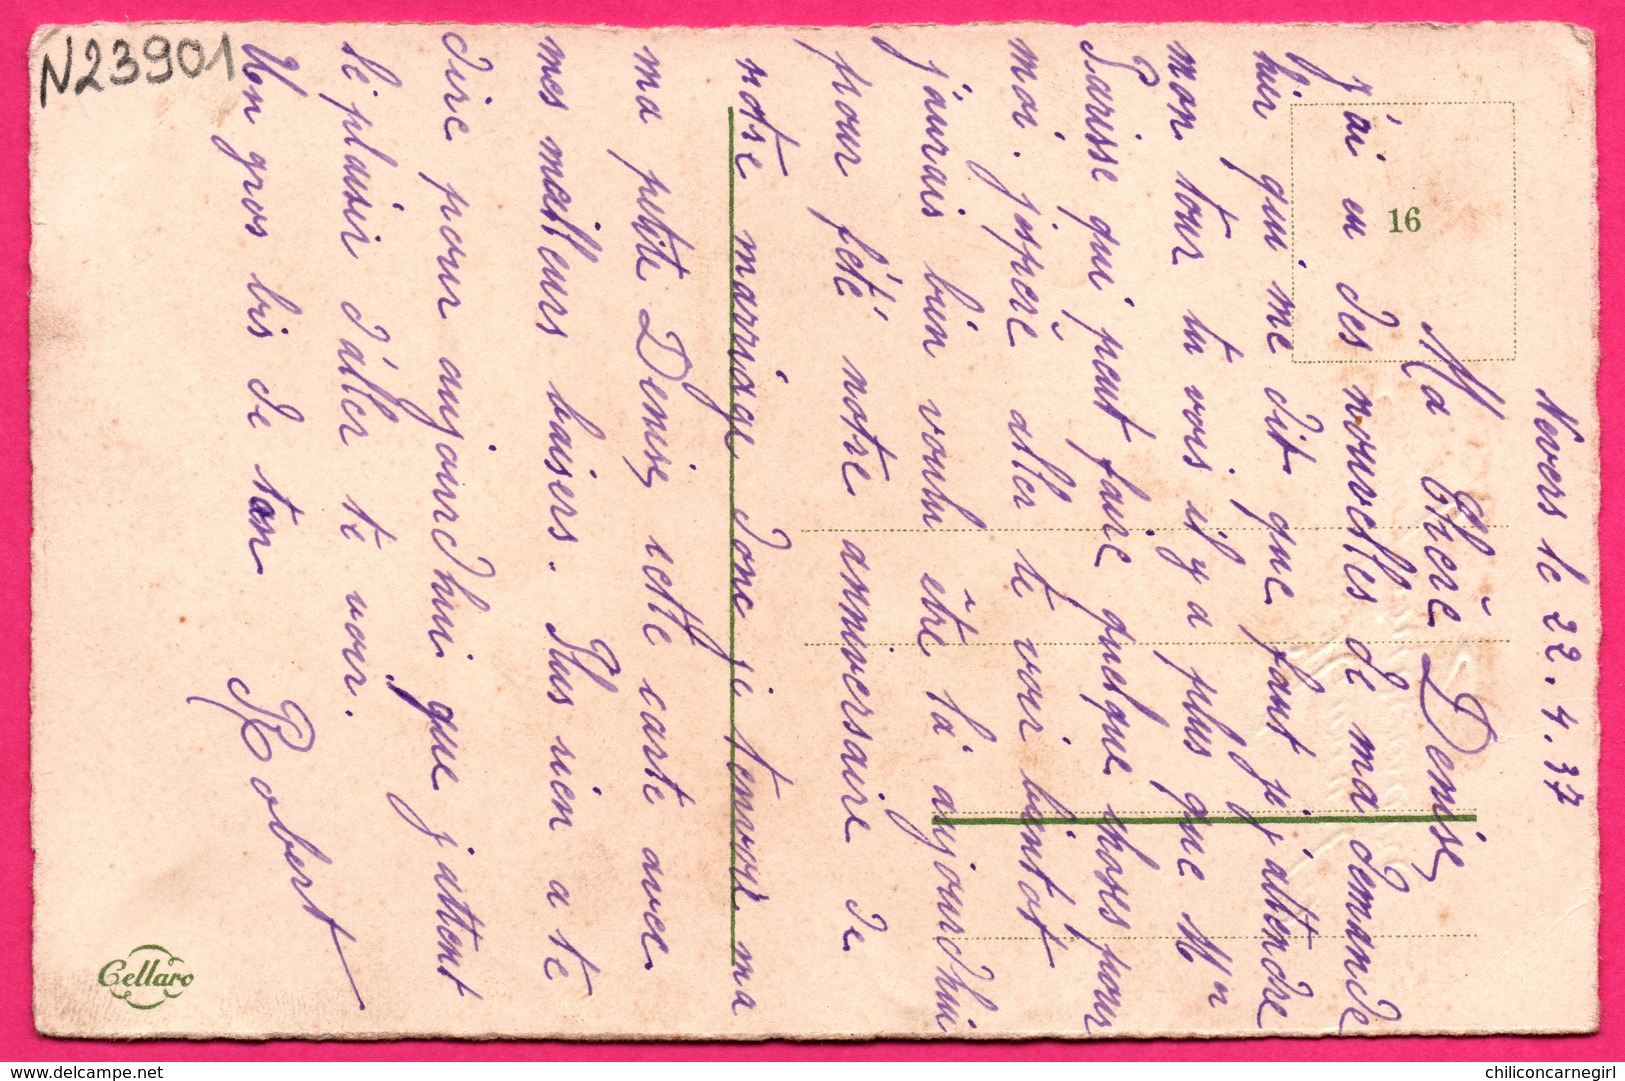 N23901
Nevers le 22.4.37
Ma Chère Denise
j'ai eu des nouvelles de ma demande
hier qui me dit que faut j'attendre
mon tour tu vois il y a plus que Mr
Parisse qui peut faire quesque choses pour
moi. j'espère aller te voir bientot
j'aurais bien voulu être là aujourd'hui
pour fété notre anniversaire de
notre marriage, Donc je tenvoie ma
ma petite Denise, sette carte avec
mes meilleurs baisers. Plus rien a te
dire pour aujourd'hui que j'attent
le plaisir d'aller te voir.
Un gros bis de ton
Robert
16
Cellaro
http://www.delcampe.net
chiliconcarnegirl